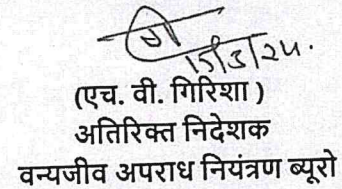 15/3/24.
(एच. वी. गिरिशा )
अतिरिक्त निदेशक
वन्यजीव अपराध नियंत्रण ब्यूरो